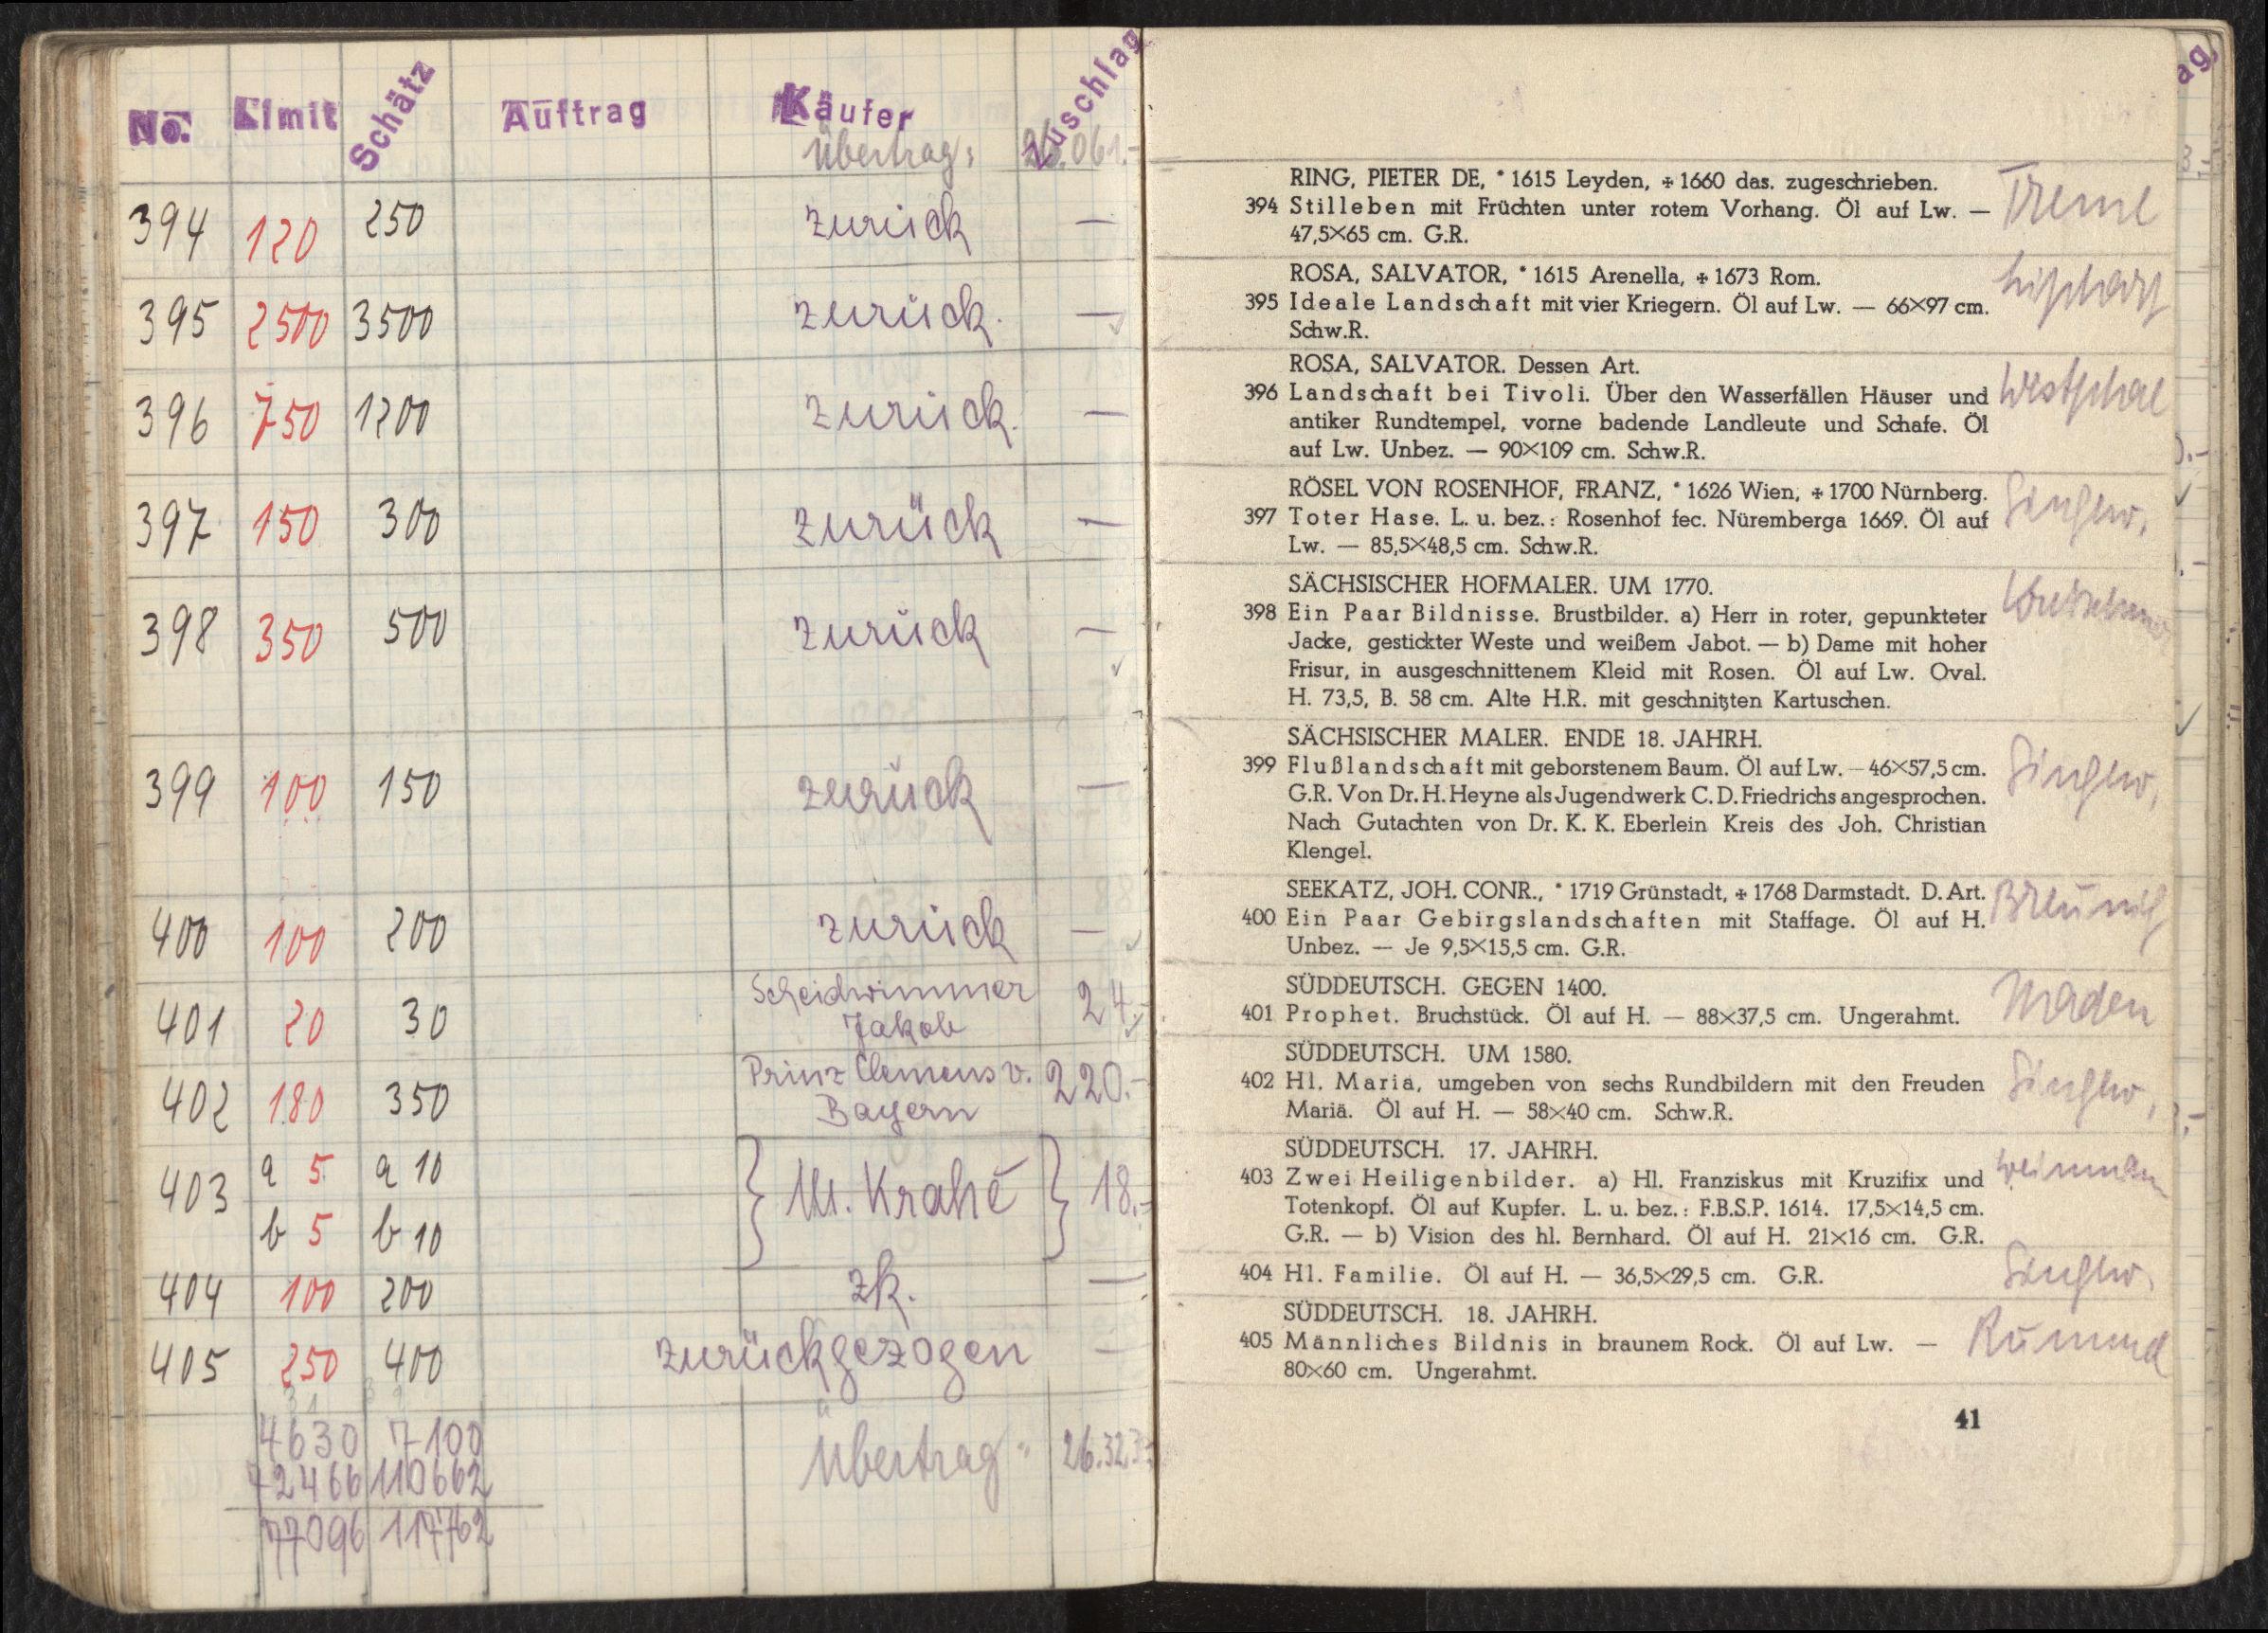 No. Limit Schätz Auftrag Käufer Zuschlag
Übertrag: 26.061.-
394 120 250 zurück —
395 2500 3500 zurück. —
396 750 1200 zurück. —
397 150 300 zurück —
398 350 500 zurück —
399 100 150 zurück —
400 100 200 zurück —
401 20 30 Scheidwimmer 24.-
Jakob
402 180 350 Prinz Clemens v. 220.-
Bayern
403 a 5 a 10 M. Krahé 18.-
b 5 b 10
404 100 200 zk. —
405 250 400 zurückgezogen —
4630 7100 Übertrag 26.323.-
72466 110662
77096 117762
RING, PIETER DE, * 1615 Leyden, ✠ 1660 das. zugeschrieben.
394 Stilleben mit Früchten unter rotem Vorhang. Öl auf Lw. —
47,5×65 cm. G.R.
ROSA, SALVATOR, * 1615 Arenella, ✠ 1673 Rom.
395 Ideale Landschaft mit vier Kriegern. Öl auf Lw. — 66×97 cm.
Schw.R.
ROSA, SALVATOR. Dessen Art.
396 Landschaft bei Tivoli. Über den Wasserfällen Häuser und Westphal
antiker Rundtempel, vorne badende Landleute und Schafe. Öl
auf Lw. Unbez. — 90×109 cm. Schw.R.
RÖSEL VON ROSENHOF, FRANZ, * 1626 Wien, ✠ 1700 Nürnberg.
397 Toter Hase. L. u. bez.: Rosenhof fec. Nüremberga 1669. Öl auf
Lw. — 85,5×48,5 cm. Schw.R.
SÄCHSISCHER HOFMALER. UM 1770.
398 Ein Paar Bildnisse. Brustbilder. a) Herr in roter, gepunkteter
Jacke, gestickter Weste und weißem Jabot. — b) Dame mit hoher
Frisur, in ausgeschnittenem Kleid mit Rosen. Öl auf Lw. Oval.
H. 73,5, B. 58 cm. Alte H.R. mit geschnitzten Kartuschen.
SÄCHSISCHER MALER. ENDE 18. JAHRH.
399 Flußlandschaft mit geborstenem Baum. Öl auf Lw. — 46×57,5 cm.
G.R. Von Dr. H. Heyne als Jugendwerk C. D. Friedrichs angesprochen.
Nach Gutachten von Dr. K. K. Eberlein Kreis des Joh. Christian
Klengel.
SEEKATZ, JOH. CONR., * 1719 Grünstadt, ✠ 1768 Darmstadt. D. Art.
400 Ein Paar Gebirgslandschaften mit Staffage. Öl auf H.
Unbez. — Je 9,5×15,5 cm. G.R.
SÜDDEUTSCH. GEGEN 1400.
401 Prophet. Bruchstück. Öl auf H. — 88×37,5 cm. Ungerahmt.
SÜDDEUTSCH. UM 1580.
402 Hl. Maria, umgeben von sechs Rundbildern mit den Freuden
Mariä. Öl auf H. — 58×40 cm. Schw.R.
SÜDDEUTSCH. 17. JAHRH.
403 Zwei Heiligenbilder. a) Hl. Franziskus mit Kruzifix und
Totenkopf. Öl auf Kupfer. L. u. bez.: F.B.S.P. 1614. 17,5×14,5 cm.
G.R. — b) Vision des hl. Bernhard. Öl auf H. 21×16 cm. G.R.
404 Hl. Familie. Öl auf H. — 36,5×29,5 cm. G.R.
SÜDDEUTSCH. 18. JAHRH.
405 Männliches Bildnis in braunem Rock. Öl auf Lw. —
80×60 cm. Ungerahmt.
41